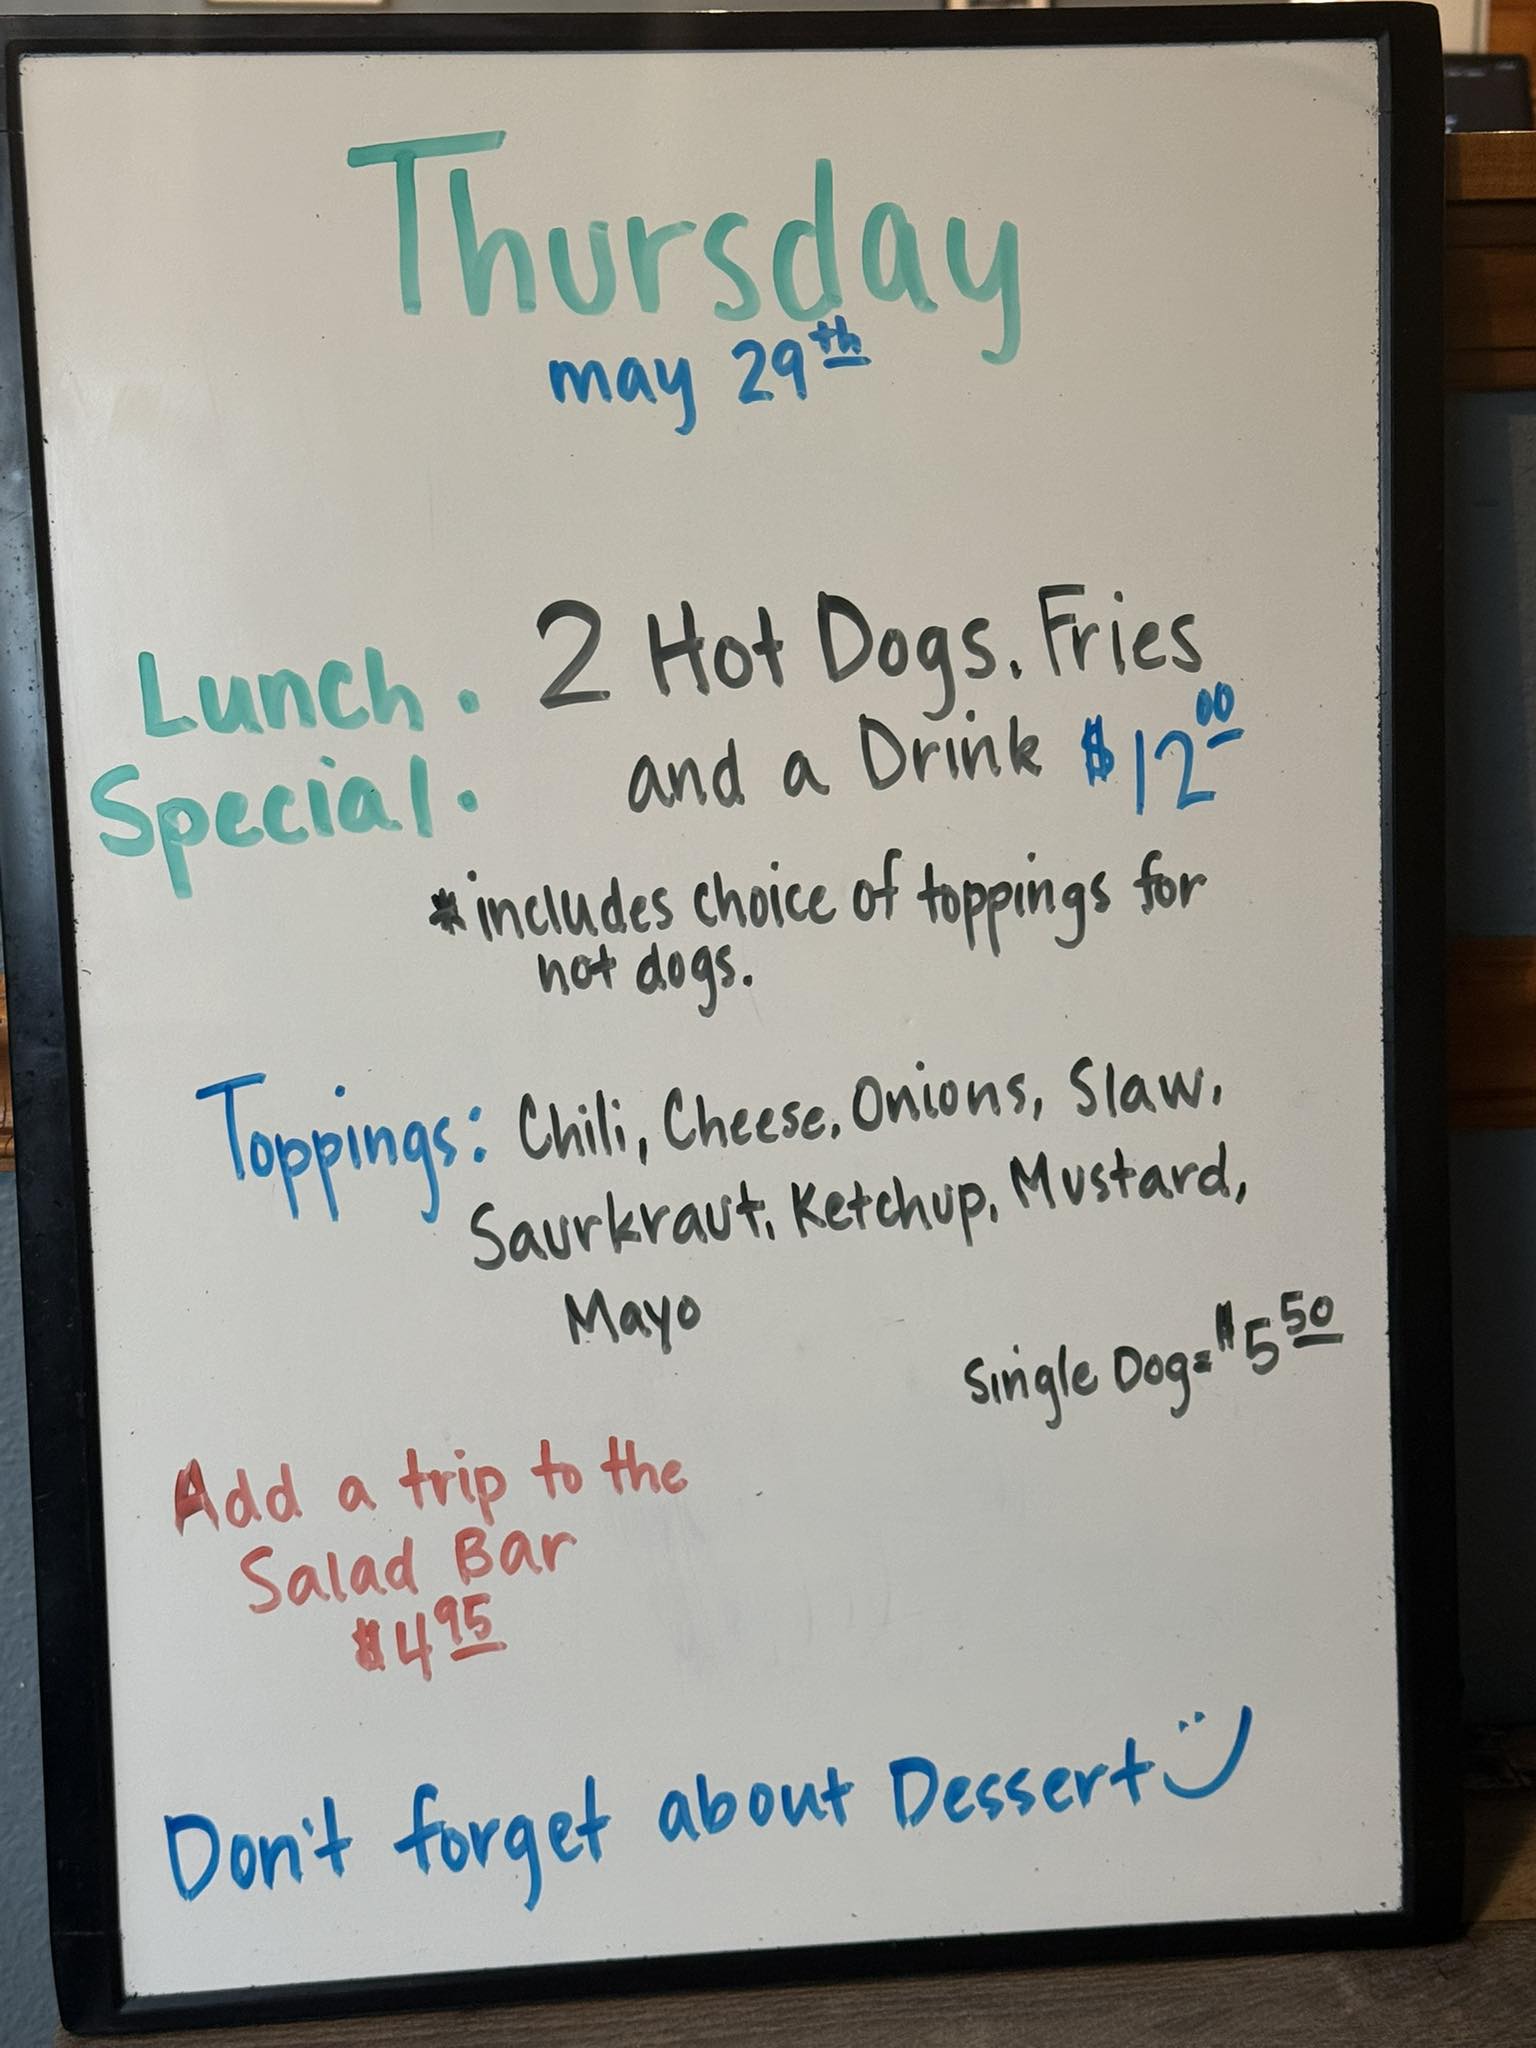 Thursday
may 29th
Lunch Special: 2 Hot Dogs, Fries
and a Drink $12.00
*includes choice of toppings for
hot dogs.
Toppings: Chili, Cheese, Onions, Slaw,
Saurkraut, Ketchup, Mustard,
Mayo
Single Dog= $5.50
Add a trip to the
Salad Bar
$4.95
Don't forget about Dessert